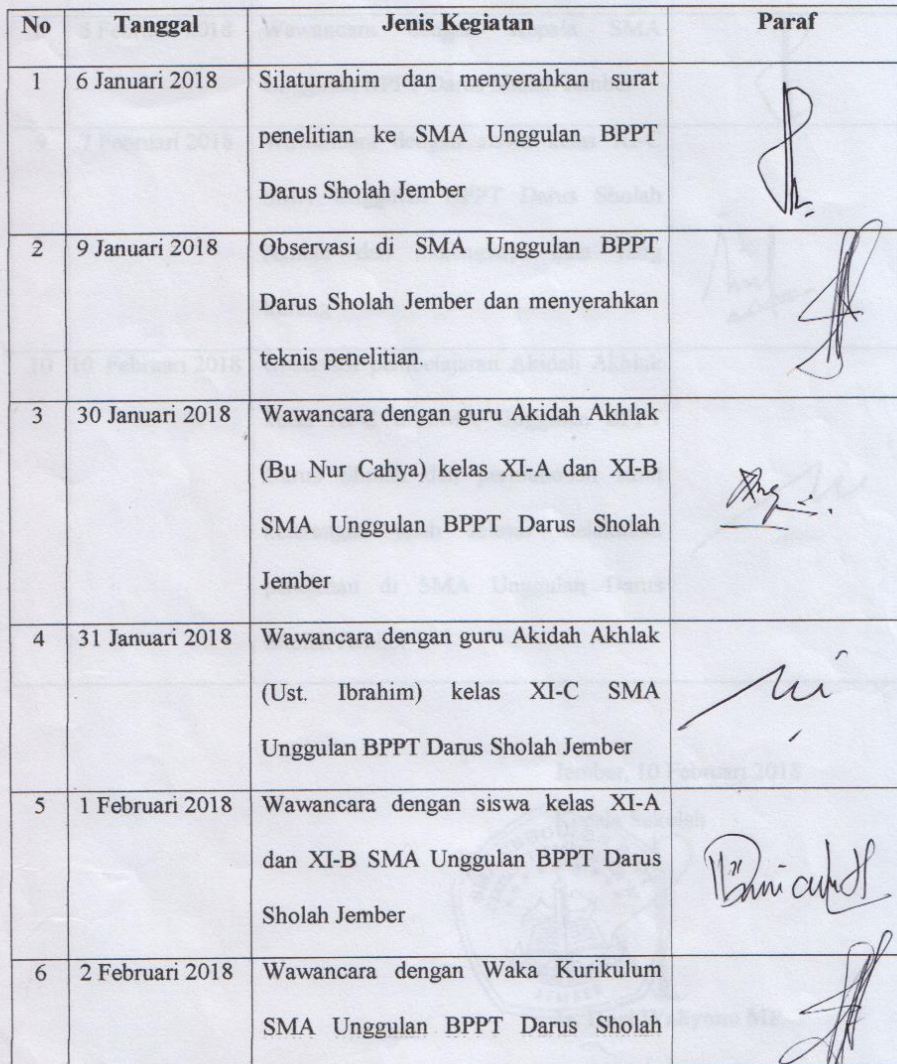 No Tanggal Jenis Kegiatan Paraf
1 6 Januari 2018 Silaturrahim dan menyerahkan surat
penelitian ke SMA Unggulan BPPT
Darus Sholah Jember
2 9 Januari 2018 Observasi di SMA Unggulan BPPT
Darus Sholah Jember dan menyerahkan
teknis penelitian
3 30 Januari 2018 Wawancara dengan guru Akidah Akhlak
(Bu Nur Cahya) kelas XI-A dan XI-B
SMA Unggulan BPPT Darus Sholah
Jember
4 31 Januari 2018 Wawancara dengan guru Akidah Akhlak
(Ust. Ibrahim) kelas XI-C SMA
Unggulan BPPT Darus Sholah Jember
Jember, 10 Februari 2018
5 1 Februari 2018 Wawancara dengan siswa kelas XI-A
Kepala Sekolah
dan XI-B SMA Unggulan BPPT Darus
Sholah Jember
6 2 Februari 2018 Wawancara dengan Waka Kurikulum
SMA Unggulan BPPT Darus Sholah